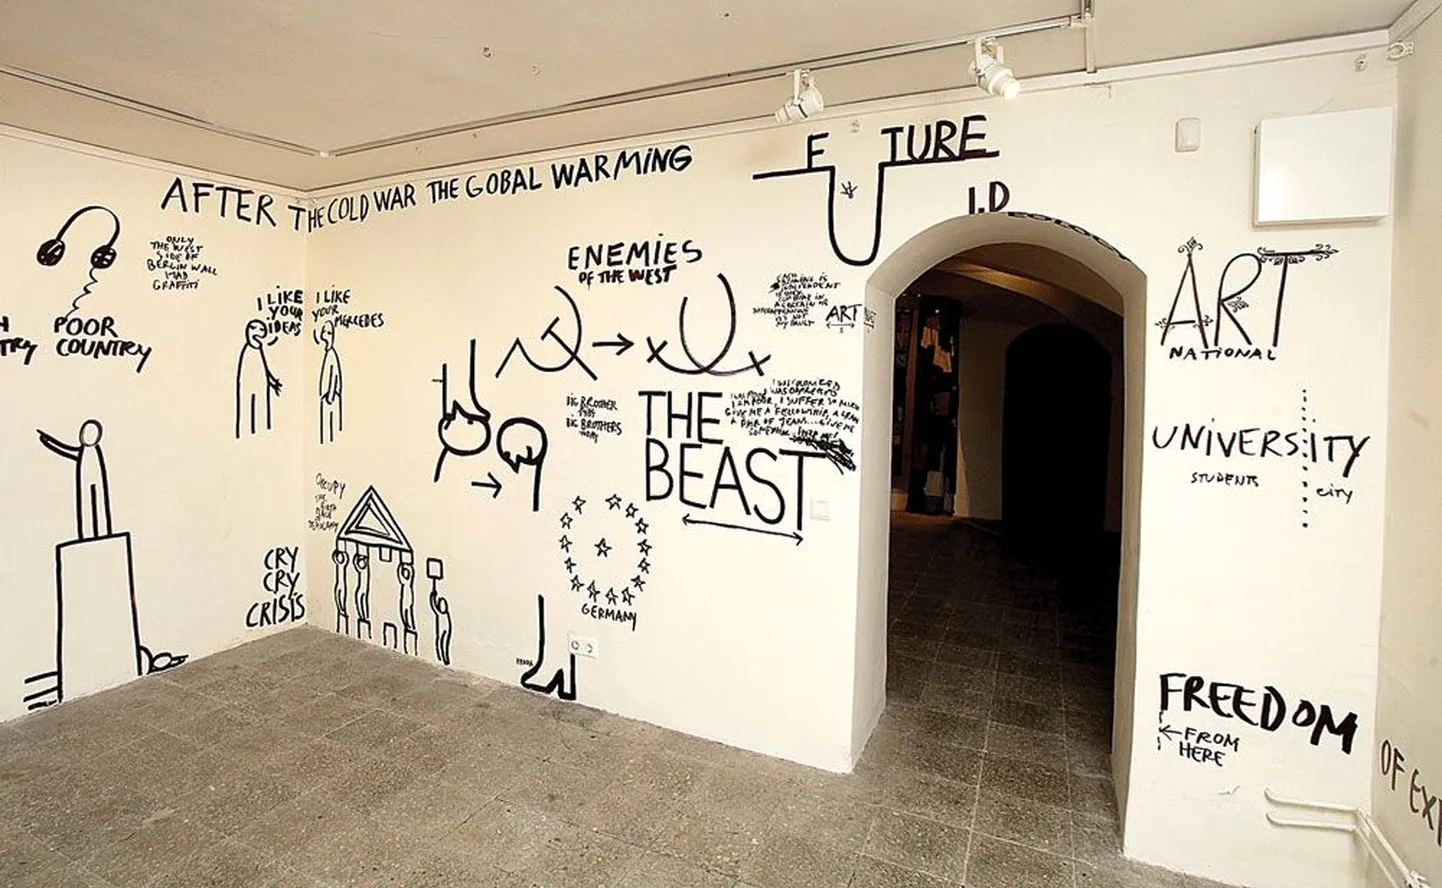 AFTER THE COLD WAR THE GOBAL WARMING
F TURE
I.D
ONLY
THE WEST
SIDE OF
BERLIN WALL
HAD
GRAFFITI
POOR
COUNTRY
I LIKE
YOUR
IDEAS
I LIKE
YOUR
MERCEDES
ENEMIES
OF THE WEST
ART
BIG BROTHER
1984
BIG BROTHERS
TODAY
THE
BEAST
I AM POOR, I SUFFER SO MUCH
GIVE ME A FELLOWSHIP, A GRANT
OCCUPY
CRY
CRY
CRISIS
GERMANY
ART
NATIONAL
UNIVERSITY
STUDENTS
CITY
FREEDOM
FROM
HERE
OF